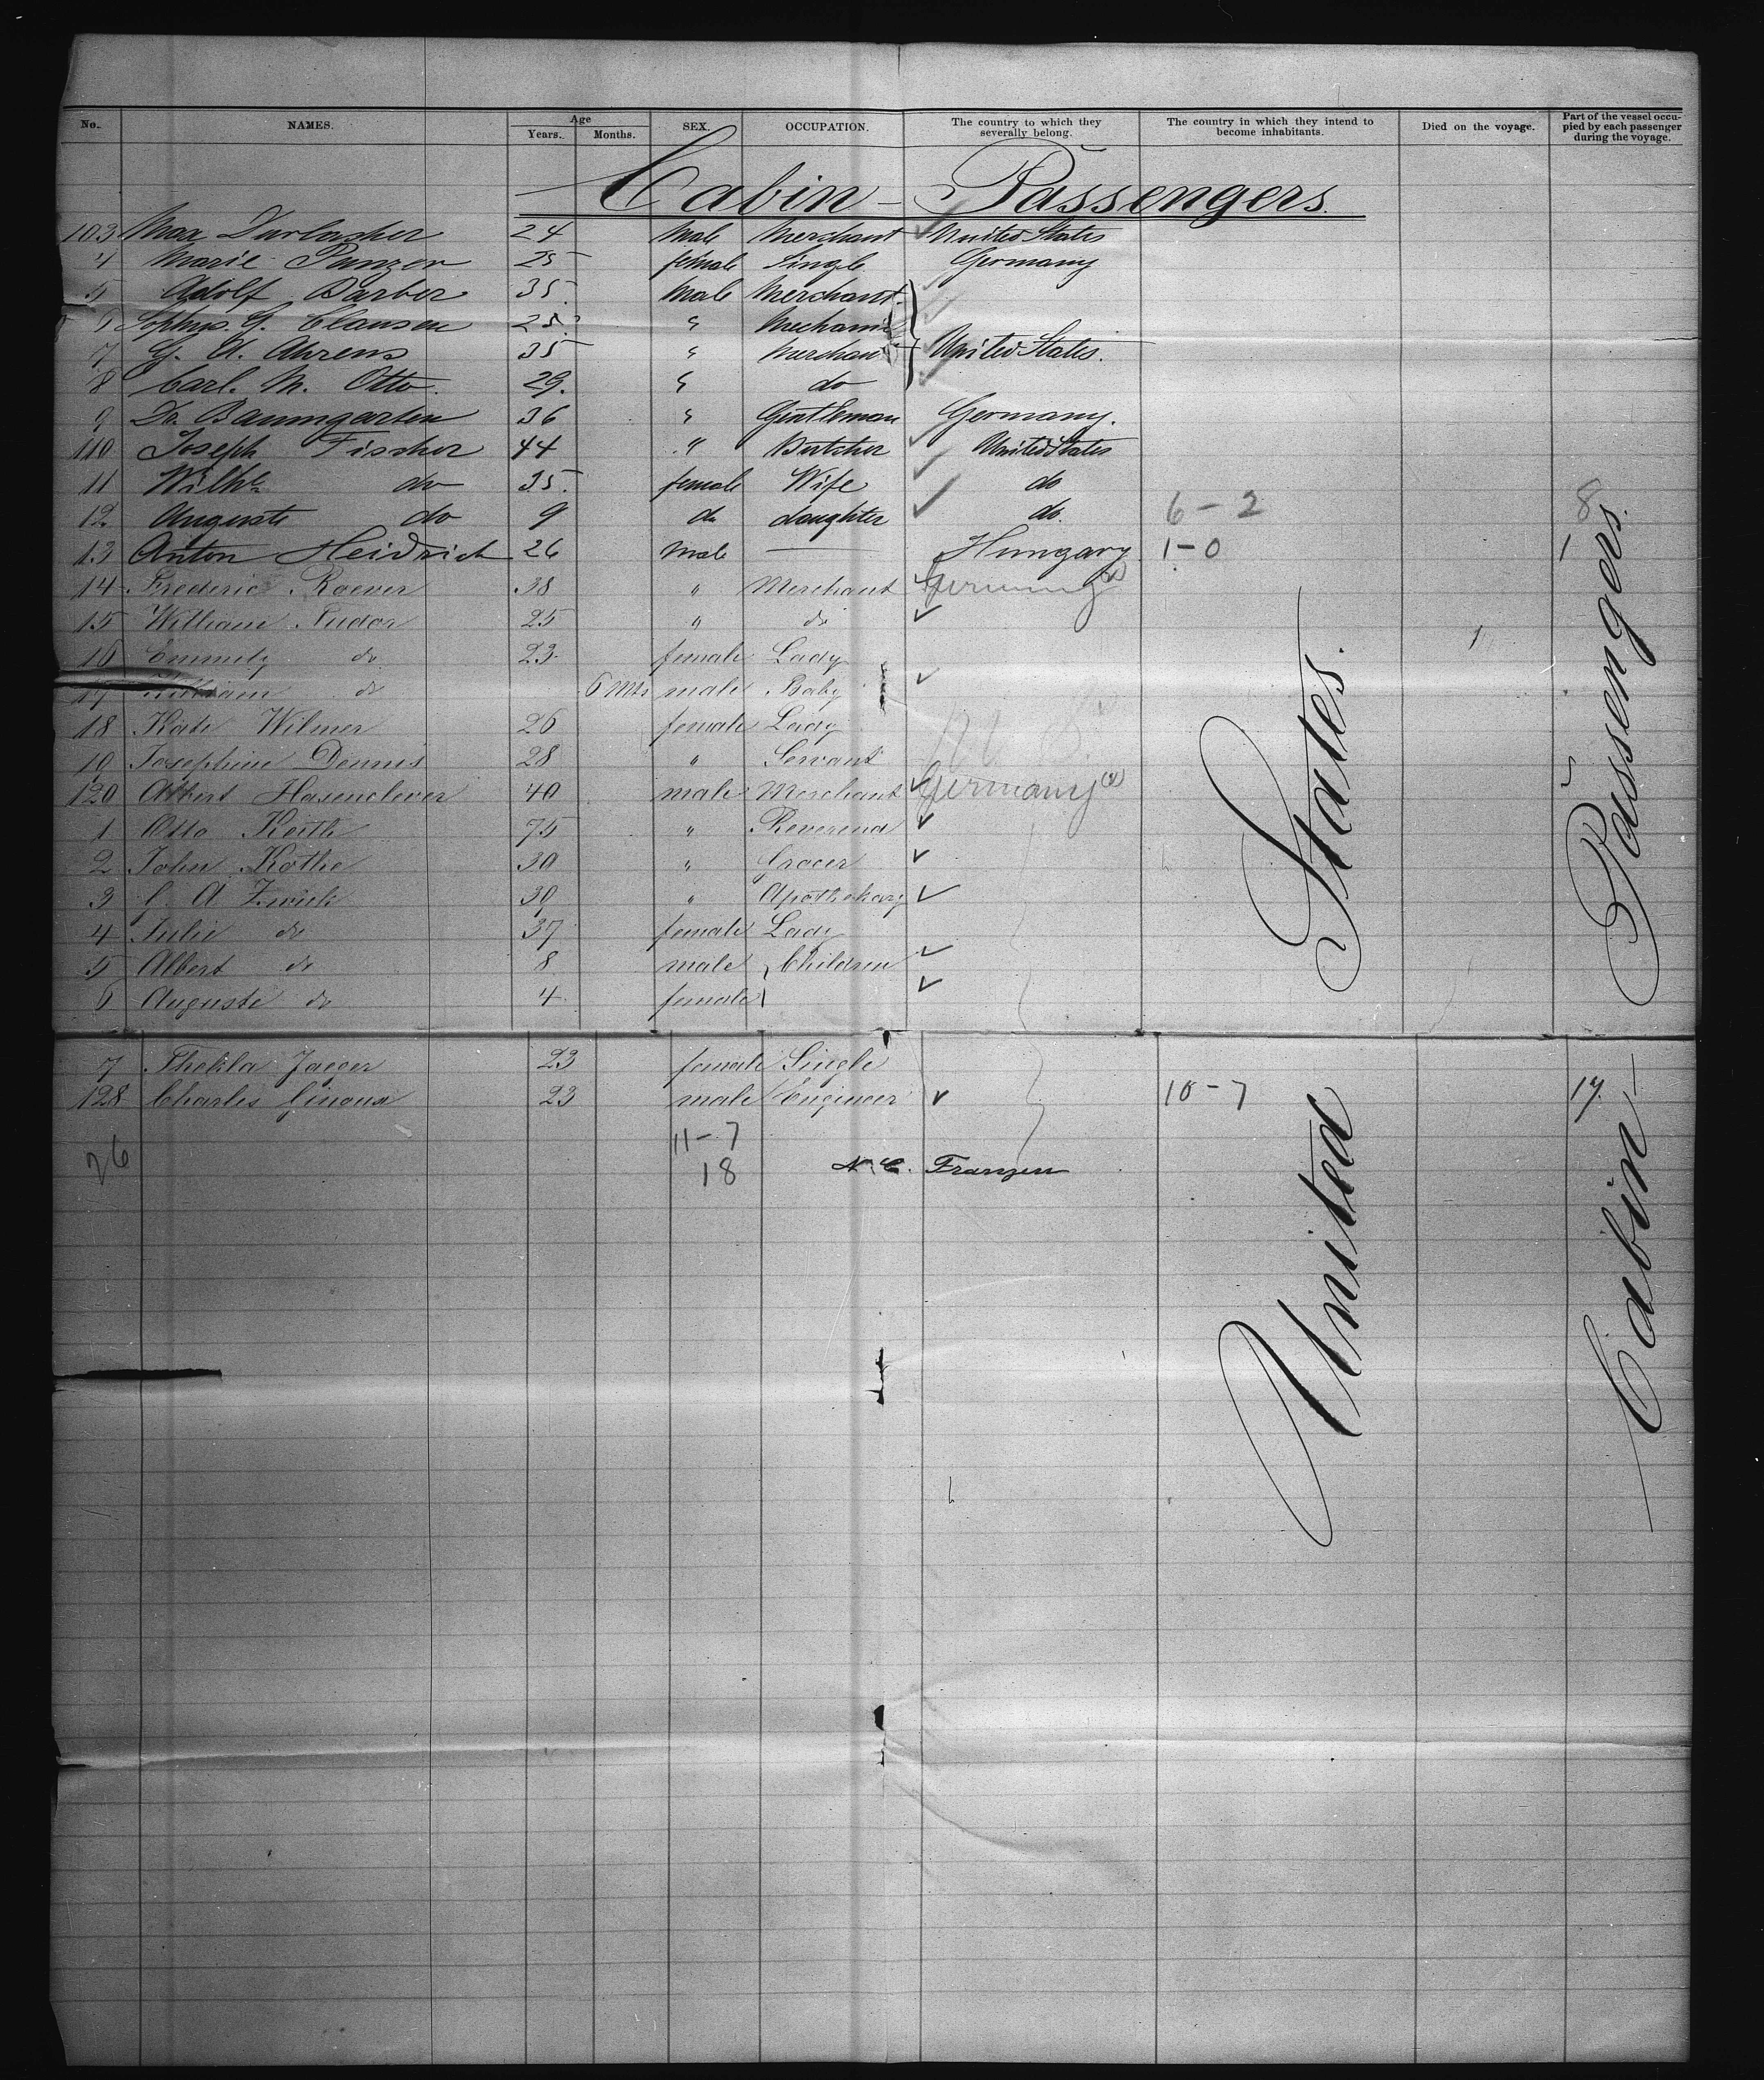 No. NAMES. Age Years. Months. SEX. OCCUPATION. The country to which they severally belong. The country in which they intend to become inhabitants. Died on the voyage. Part of the vessel occupied by each passenger during the voyage.
Cabin - Passengers.
103 Max Durlacher 24 Male Merchant United States
4 Marie Panzer 25 female Single Germany
5 Adolf Barber 35. Male Merchant.
6 Sophus. G. Clausen 25. " Mechanic
7 G. A. Ahrens 35 " Merchant United States.
8 Carl. M. Otto. 29. " do
9 Dr. Baumgarten 36 " Gentleman Germany.
110 Joseph Fischer 44 " Butcher United States
11 Wilhe do 35. female Wife do
12 Auguste do 9 do daughter do. 6-2 8
13 Anton Heidrich 26 Male — Hungary 1-0 1
14 Frederic Roever 38 " Merchant Germany
15 William Tudor 25 " do
16 Emmely do 23 female Lady 1
17 William do 6 Mts male Baby
18 Kate Wilmer 26 female Lady
19 Josephine Dennis 28 " Servant
120 Albert Hasenclever 40 male Merchant Germany
1 Otto Keith 75 " Reverend
2 John Kothe 30 " Grocer
3 G. A Zwick 39 " Apothekary
4 Julie do 37 female Lady
5 Albert do 8 male Children
6 Auguste do 4 female
7 Thekla Jaeger 23 female Single
128 Charles Ginoux 23 male Engineer 10-7 17
11-7
26 18 N. C. Franzen
United States.
Cabin - Passengers.